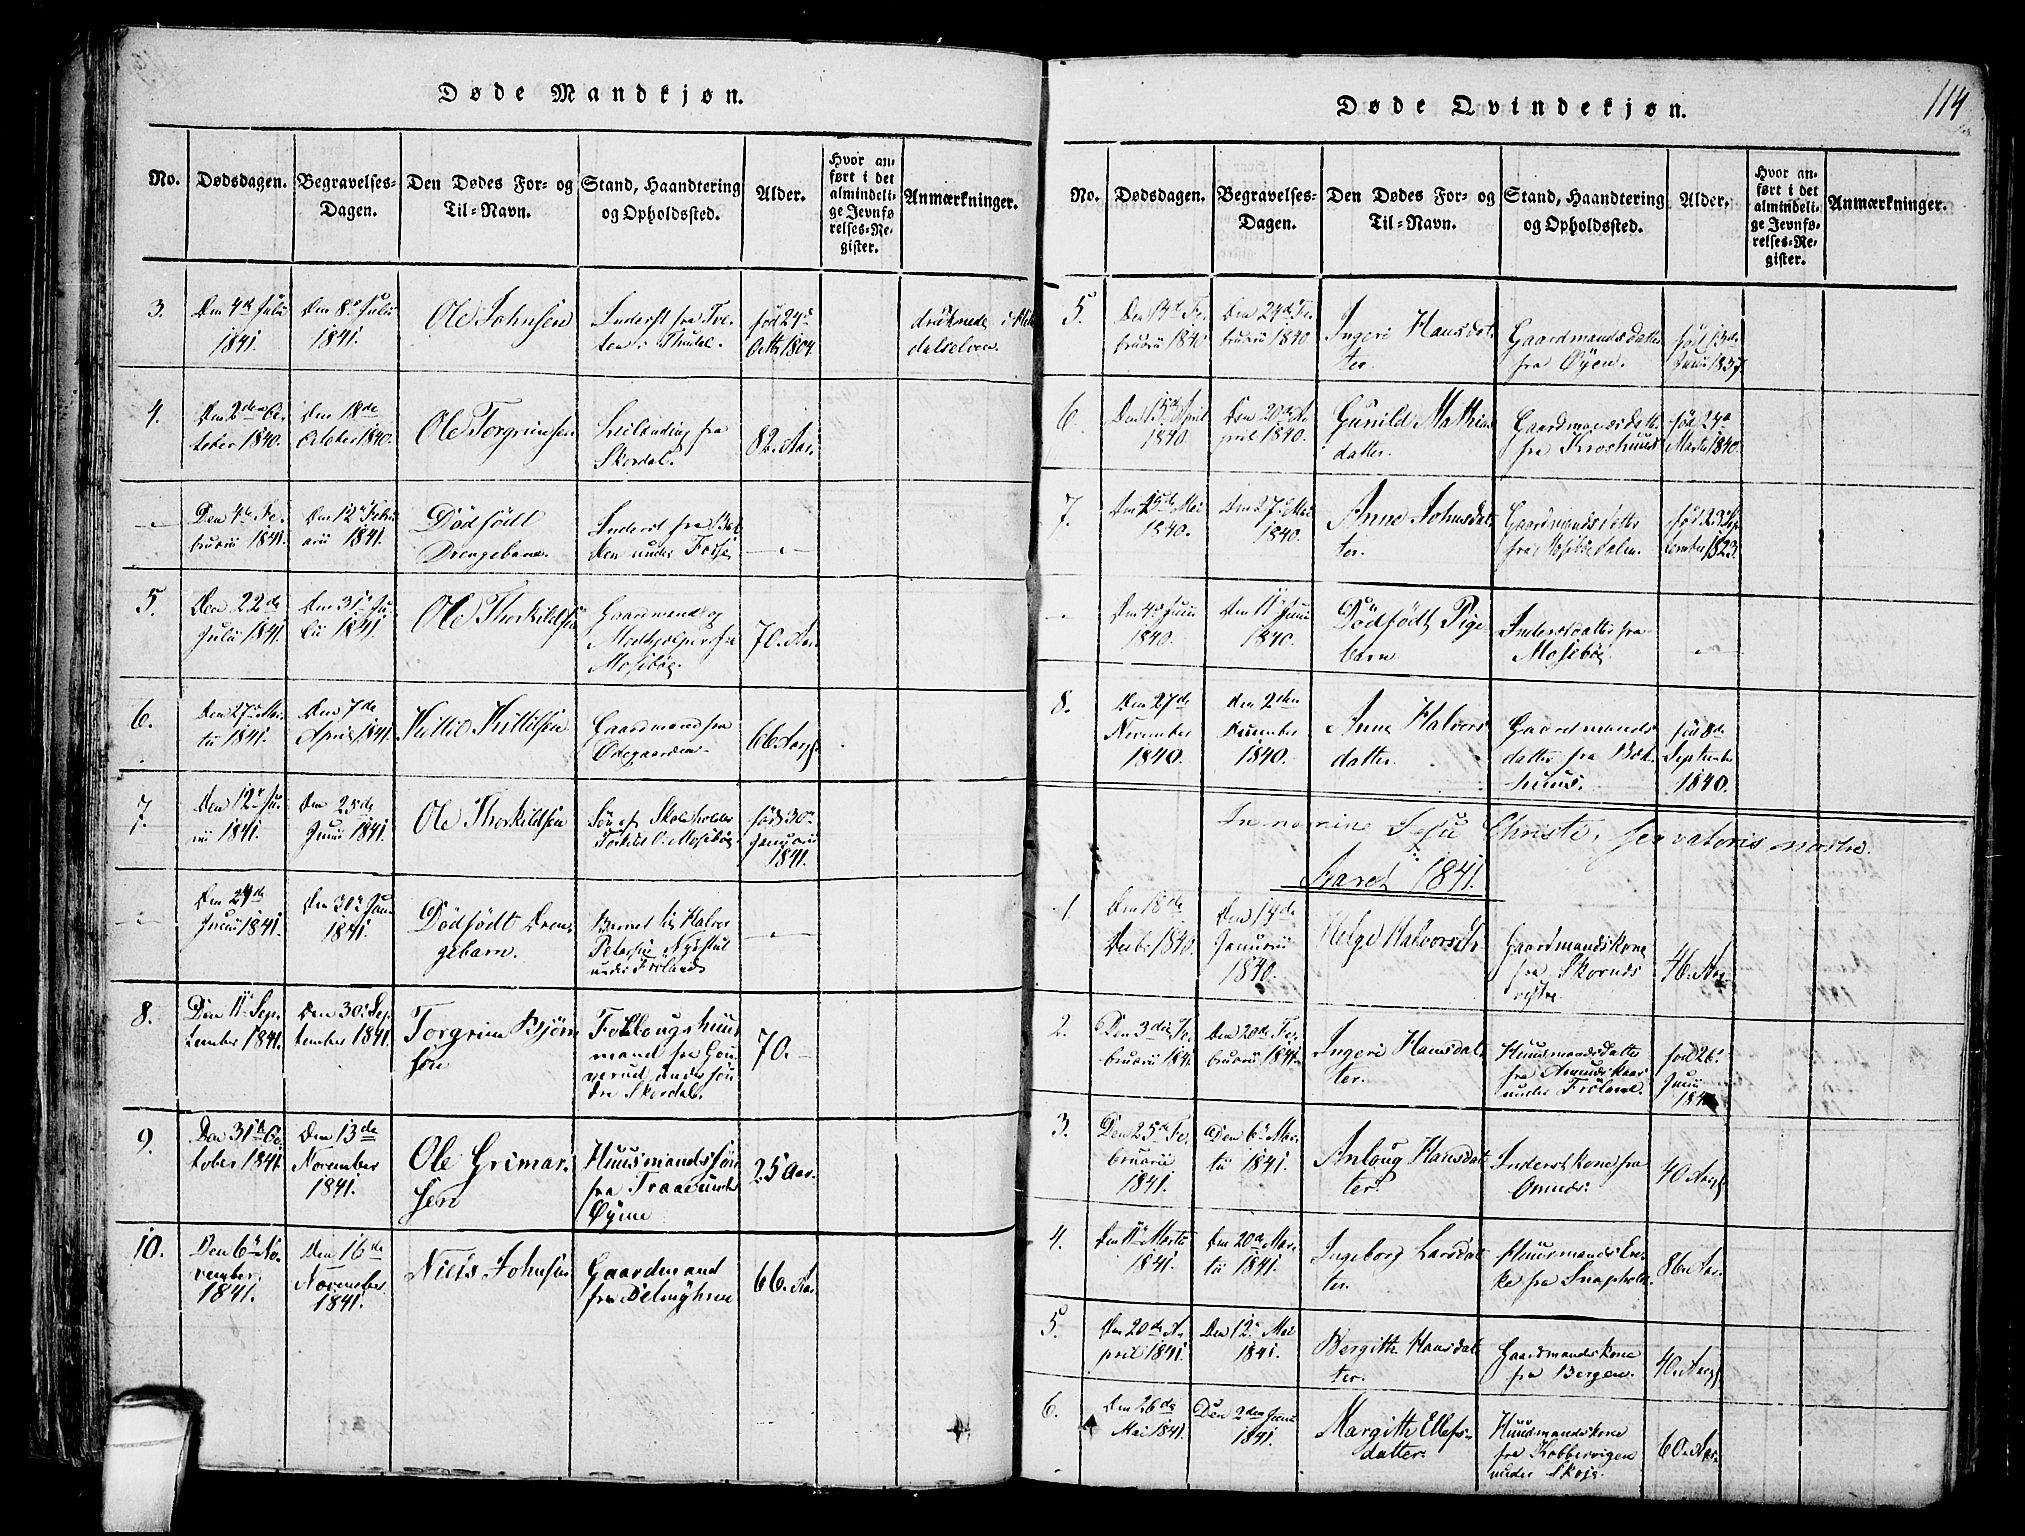 Døde Mandkjøn.
No.
Dødsdagen.
Begravelses-
Dagen.
Den Dødes For- og
Til-Navn.
Stand, Haandtering
og Opholdssted.
Alder.
Hvor an-
ført i det
almindeli-
ge Jevnfø
relses-Re-
gister.
Anmærkninger.
3.
Den 4de Julii
1841.
Den 8de Julii
1841.
Ole Johnsen
Inderst fra Tve-
ten i
født 24de
Octbr 1804.
druknede i
dalselven.
4.
Den 2den Oc-
tober 1840.
Den 18de
October 1840.
Ole Torgrimsen
fra
Skordal.
82. Aar.
Den 4de Fe-
bruarii 1841.
Den 12te Febru
arii 1841.
Dödfödt
Drengebarn.
Inderst fra
den under
5.
Den 22de
Julii 1841.
Den 31te Ju-
lii 1841.
Ole Thorkildsen
Gaardmand og
Medhjelper fra
Mosebøe.
70. Aar.
6.
Den 27de Mar-
tii 1841.
Den 7de
April 1841.
Kittil Kittilsen
Gaardmand fra
Ødegaarden.
66 Aar
7.
Den 12te Ju-
nii 1841.
Den 25de
Junii 1841.
Ole Thorkildsen
Søn af Skoleholder
Mosebøe
født 30te
Januarii
1841.
Den 24de
Junii 1841.
Den 30te Junii
1841.
Dödfödt Dren-
gebarn.
Barnet til Halvor
Petersen Nystul
under Fröland
8.
Den 11te Sep-
tember 1841.
Den 30te Sep
tember 1841.
Torgrim Bjørn
søn
Follougshuus
mand fra Gou-
verud under søn
dre Skordal.
70.
9.
Den 31te Oc-
tober 1841.
Den 13de
November
1841.
Ole Grimar-
sen
Huusmandssøn
fra Traae under
Øyene
25 Aar.
10.
Den 6te No-
vember.
1841.
Den 16de
November
1841.
Niels Johnsen
Gaardmand
fra
66. Aar.
114
Døde Qvindekjøn.
No.
Dødsdagen.
Begravelses-
Dagen.
Den Dødes For- og
Til-Navn.
Stand, Haandtering
og Opholdssted.
Alder.
Hvor an-
ført i det
almindeli-
ge Jevnfø-
relses-Re-
gister.
Anmærkninger.
5.
Den 14de Fe-
bruarii 1840
Den 24de Fe-
bruarii 1840
Ingeri Hansdat-
ter.
Gaardmandsdatter
fra Øyen.
født 13de
Junii 1837.
6.
Den 15de April
1840.
Den 20de A-
pril 1840.
Gunild Mathias
datter.
Gaardmandsdatt
fra Kroshuus
født 24de
Martii 1840.
7.
Mai
1840.
Den 27de Mai
1840.
Anne Johnsdat-
ter.
Gaardmandsdatter
fra Mosebødalen.
født 23de Sep
tember 1823.
Den 4de Junii
1840.
Den 11te Junii
1840.
Dödfödt Pige
barn.
Inderstdatter fra
Mosebøe
8.
Den 27de
November
1840.
Den 2den
December
1840.
Anne Halvors
datter.
Gaardmands
datter fra Bak-
huus.
født 8de
September
1840.
In nomine Jesu Christi, servatoris nostri.
Aaret 1841.
1
Den 18de
Decbr 1840.
Den 14de
Januarii
1840.
Helge Halvorsdtr.
Gaardmandskone
fra Skorves
vestre
46. Aar
2.
Den 3die Fe-
bruarii 1841
Den 20de Fe-
bruarii 1841.
Ingeri Hansdat-
ter.
Huusmandsdatter
fra Amundskaas
under Fröland.
født 26de
Junii
3.
Den 25de Fe-
bruarii
1841.
Den 6te Mar-
tii 1841.
Anloug Hansdat
ter.
Inderst kone fra
Omnes.
40 Aar
4.
Den 11te Martii
1841.
Den 20de Mar-
tii 1841.
Ingeborg Larsdat
ter.
Huusmands En-
ke fra Snapholt.
86. Aar.
5.
Den 20de A-
pril 1841.
Den 12te Mai
1841.
Bergithe Hansdat-
ter.
Gaardmandskone
fra Bergen.
40. Aar
6.
Den 26de
Mai 1841.
Den 2den Junii
1841.
Margithe Ellefs-
datter.
Huusmandskone
fra Kobbervigen
under Skoje.
60. Aar.